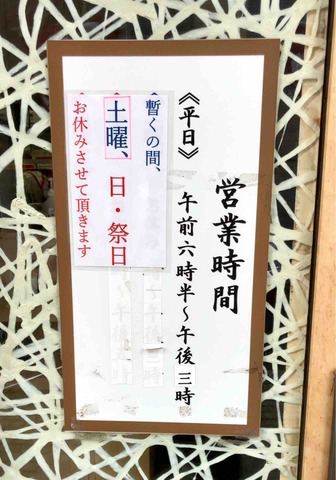 営業時間
《平日》 午前六時半～午後三時
暫くの間、
土曜、日・祭日
お休みさせて頂きます